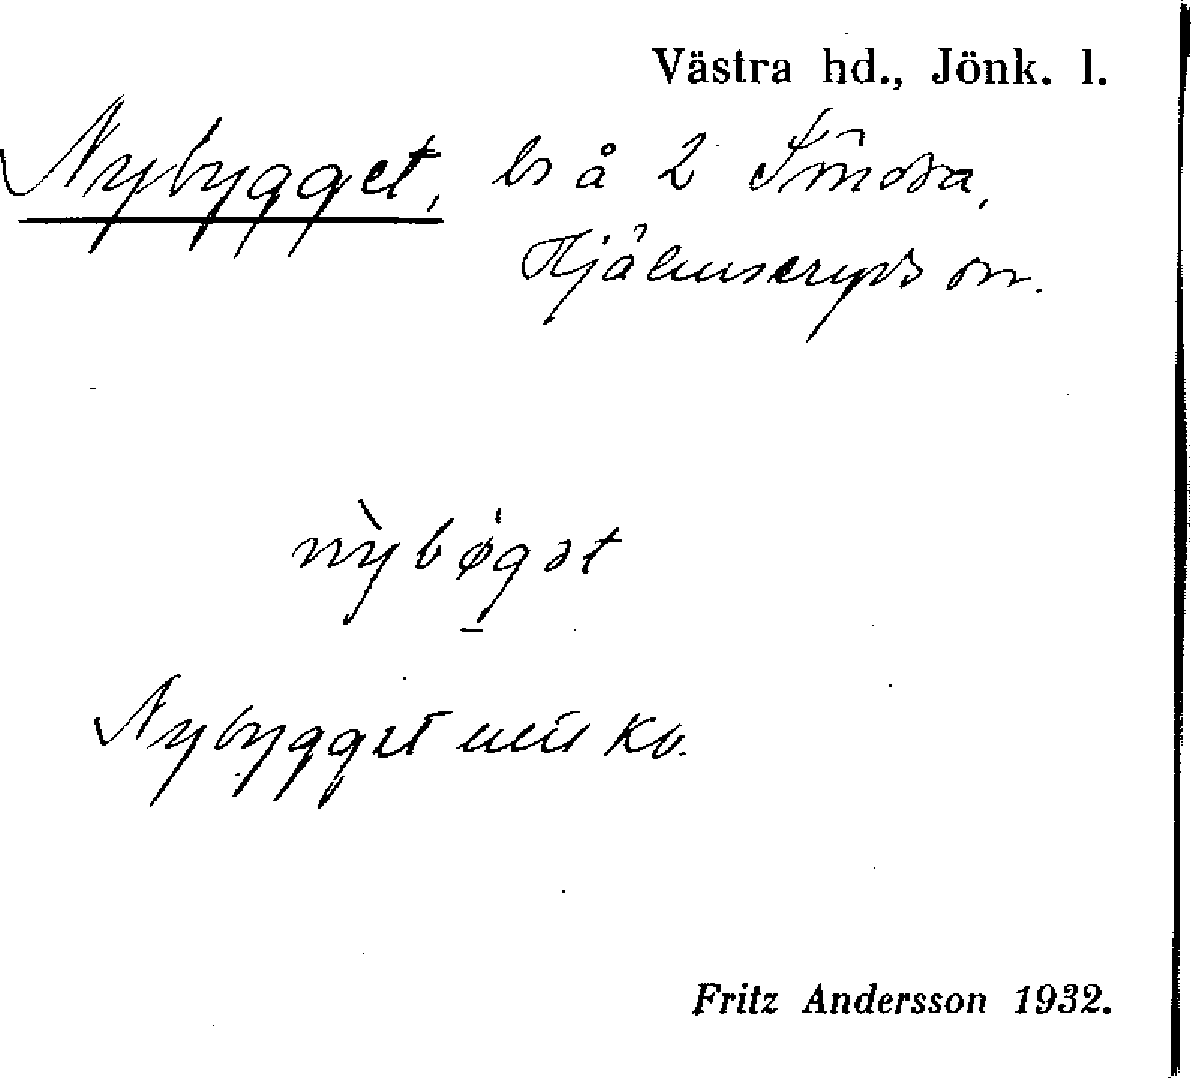 Västra hd., Jönk. l.
Nybygget, ls å 2
Hjälmseryds sn.
nỳbø̍gət
Nybygget enl kb.
Fritz Andersson 1932.